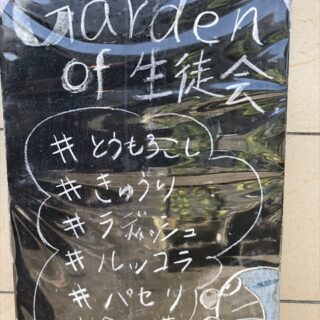 Garden
of 生徒会
# とうもろこし
# きゅうり
# ラディッシュ
# ルッコラ
# パセリ